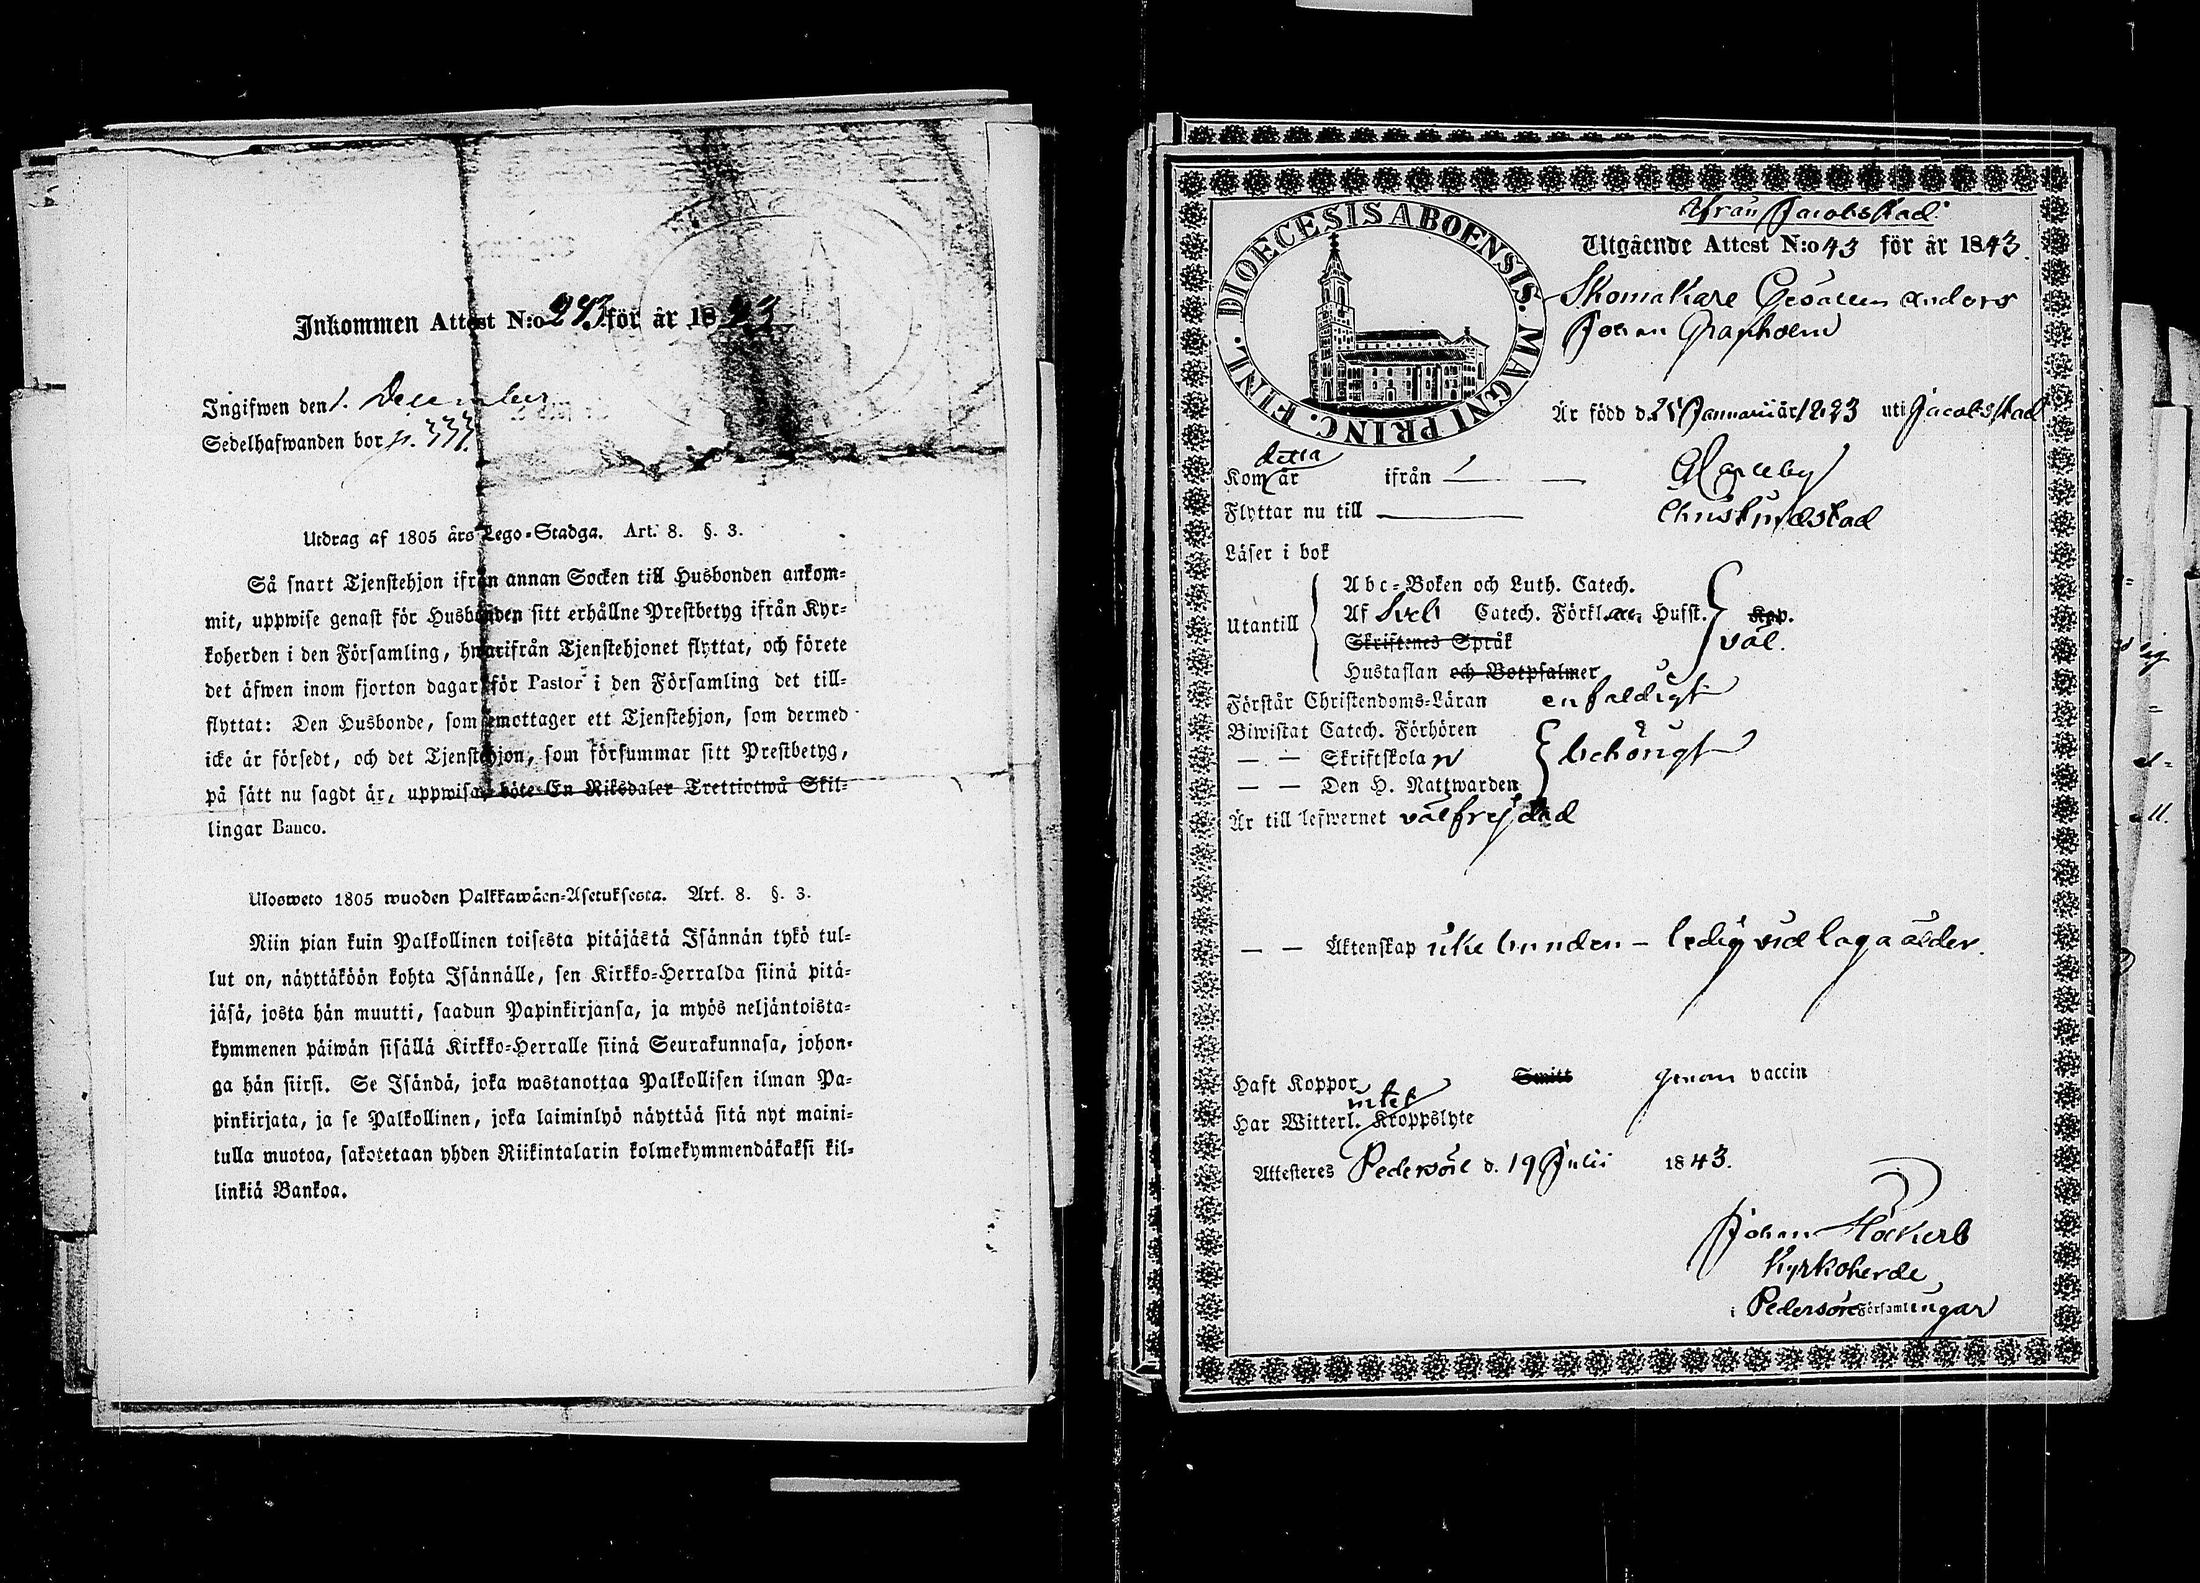 Inkommen Attest N:o 273 för år 1843
Ingifwen den 1. December
Sedelhafwanden bor p. 333.
Utdrag af 1805 års Lego-Stadga. Art. 8. §. 3.
Så snart Tjenstehjon ifrån annan Socken till Husbonden ankom-
mit, uppwise genast för Husbonden sitt erhållne Prestbetyg ifrån Kyr-
koherden i den Församling, hwarifrån Tjenstehjonet flyttat, och förete
det äfwen inom fjorton dagar för Pastor i den Församling det till-
flyttat: Den Husbonde, som emottager ett Tjenstehjon, som dermed
icke är försedt, och det Tjenstehjon, som försummar sitt Prestbetyg,
på sätt nu sagdt är, uppwisa, böte En Riksdaler Trettiotwå Skil-
lingar Banco.
Ulosweto 1805 wuoden Palkkawäen-Asetuksesta. Art. 8. §. 3.
Niin pian kuin Palkollinen toisesta pitäjästä Isännän tykö tul-
lut on, näyttäköön kohta Isännälle, sen Kirkko-Herralda siinä pitä-
jäsä, josta hän muutti, saadun Papinkirjansa, ja myös neljäntoista-
kymmenen päiwän sisällä Kirkko-Herralle siinä Seurakunnasa, johon-
ga hän siirsi. Se Isändä, joka wastanottaa Palkollisen ilman Pa-
pinkirjata, ja se Palkollinen, joka laiminlyö näyttää sitä nyt maini-
tulla muotoa, sakotetaan yhden Riikintalarin kolmekymmendäkaksi kil-
linkiä Bankoa.
DIOECESIS ABOENSIS. MAGNI PRINC. FINL.
ifrån Jacobstad
Utgående Attest N:o 43 för år 1843.
Skomakare Gesällen Anders
Johan Grapholm
Är född d. 25 Januarii år 1823 uti Jacobstad
Kom detta år ifrån
Flyttar nu till Christinæstad
Läser i bok
Utantill
Abc-Boken och Luth. Catech.
Af Sveb Catech. Förkl. Husst. Kap.
Skriftenes Språk väl.
Hustaflan och Botpsalmer
Förstår Christendoms-Läran enfaldigt
Biwistat Catech. Förhören
— — Skriftskolan behörigt
— — Den H. Nattwarden
Är till lefwernet välfrejdad
— — Äktenskap icke bunden – ledig vid laga ålder.
Haft Koppor Smitt genom vaccin
Har Witterl. intet Kroppslyte
Attesteres Pedersöre d. 19 Julii 1843.
Johan Höckert
Kyrkoherde
i Pedersöre Församlingar